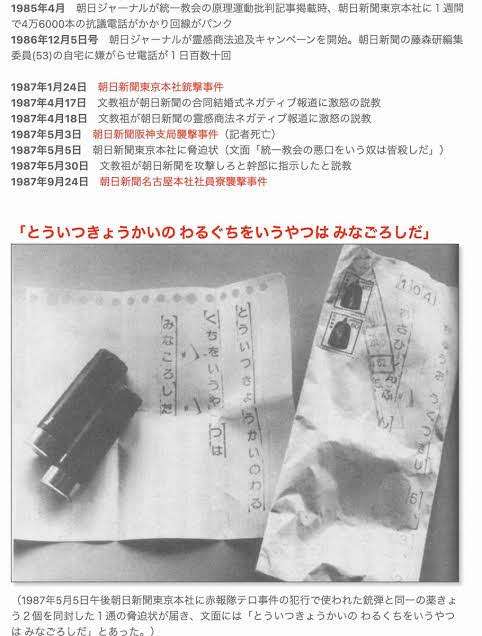 1985年4月　朝日ジャーナルが統一教会の原理運動批判記事掲載時、朝日新聞東京本社に１週間
で4万6000本の抗議電話がかかり回線がパンク
1986年12月5日号　朝日ジャーナルが霊感商法追及キャンペーンを開始。朝日新聞の藤森研編集
委員(53)の自宅に嫌がらせ電話が１日百数十回
1987年1月24日　朝日新聞東京本社銃撃事件
1987年4月17日　文教祖が朝日新聞の合同結婚式ネガティブ報道に激怒の説教
1987年4月18日　文教祖が朝日新聞の霊感商法ネガティブ報道に激怒の説教
1987年5月3日　朝日新聞阪神支局襲撃事件（記者死亡）
1987年5月5日　朝日新聞東京本社に脅迫状（文面「統一教会の悪口をいう奴は皆殺しだ」）
1987年5月30日　文教祖が朝日新聞を攻撃しろと幹部に指示したと説教
1987年9月24日　朝日新聞名古屋本社社員寮襲撃事件
「とういつきょうかいの わるぐちをいうやつは みなごろしだ」
とういつきょうかいのわる
ぐちをいうやつは
みなごろしだ
104
（1987年5月5日午後朝日新聞東京本社に赤報隊テロ事件の犯行で使われた銃弾と同一の薬きょ
う２個を同封した１通の脅迫状が届き、文面には「とういつきょうかいの わるぐちをいうやつ
は みなごろしだ」とあった。）